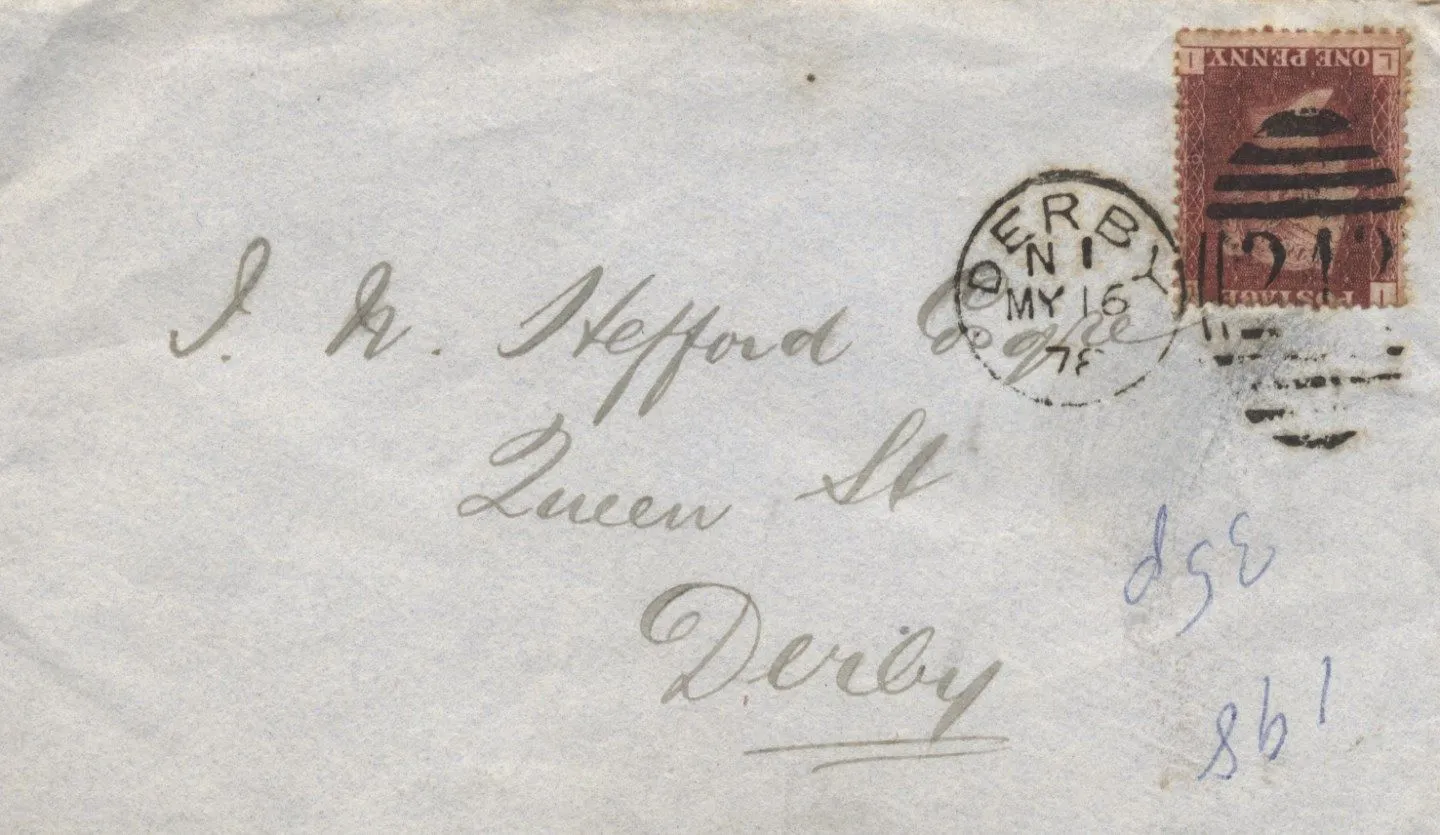 ONE PENNY
L I
POSTAGE
I L
DERBY
N 1
MY 16
78
J. N. Hefford Esqre
Queen St
Derby
35p
198